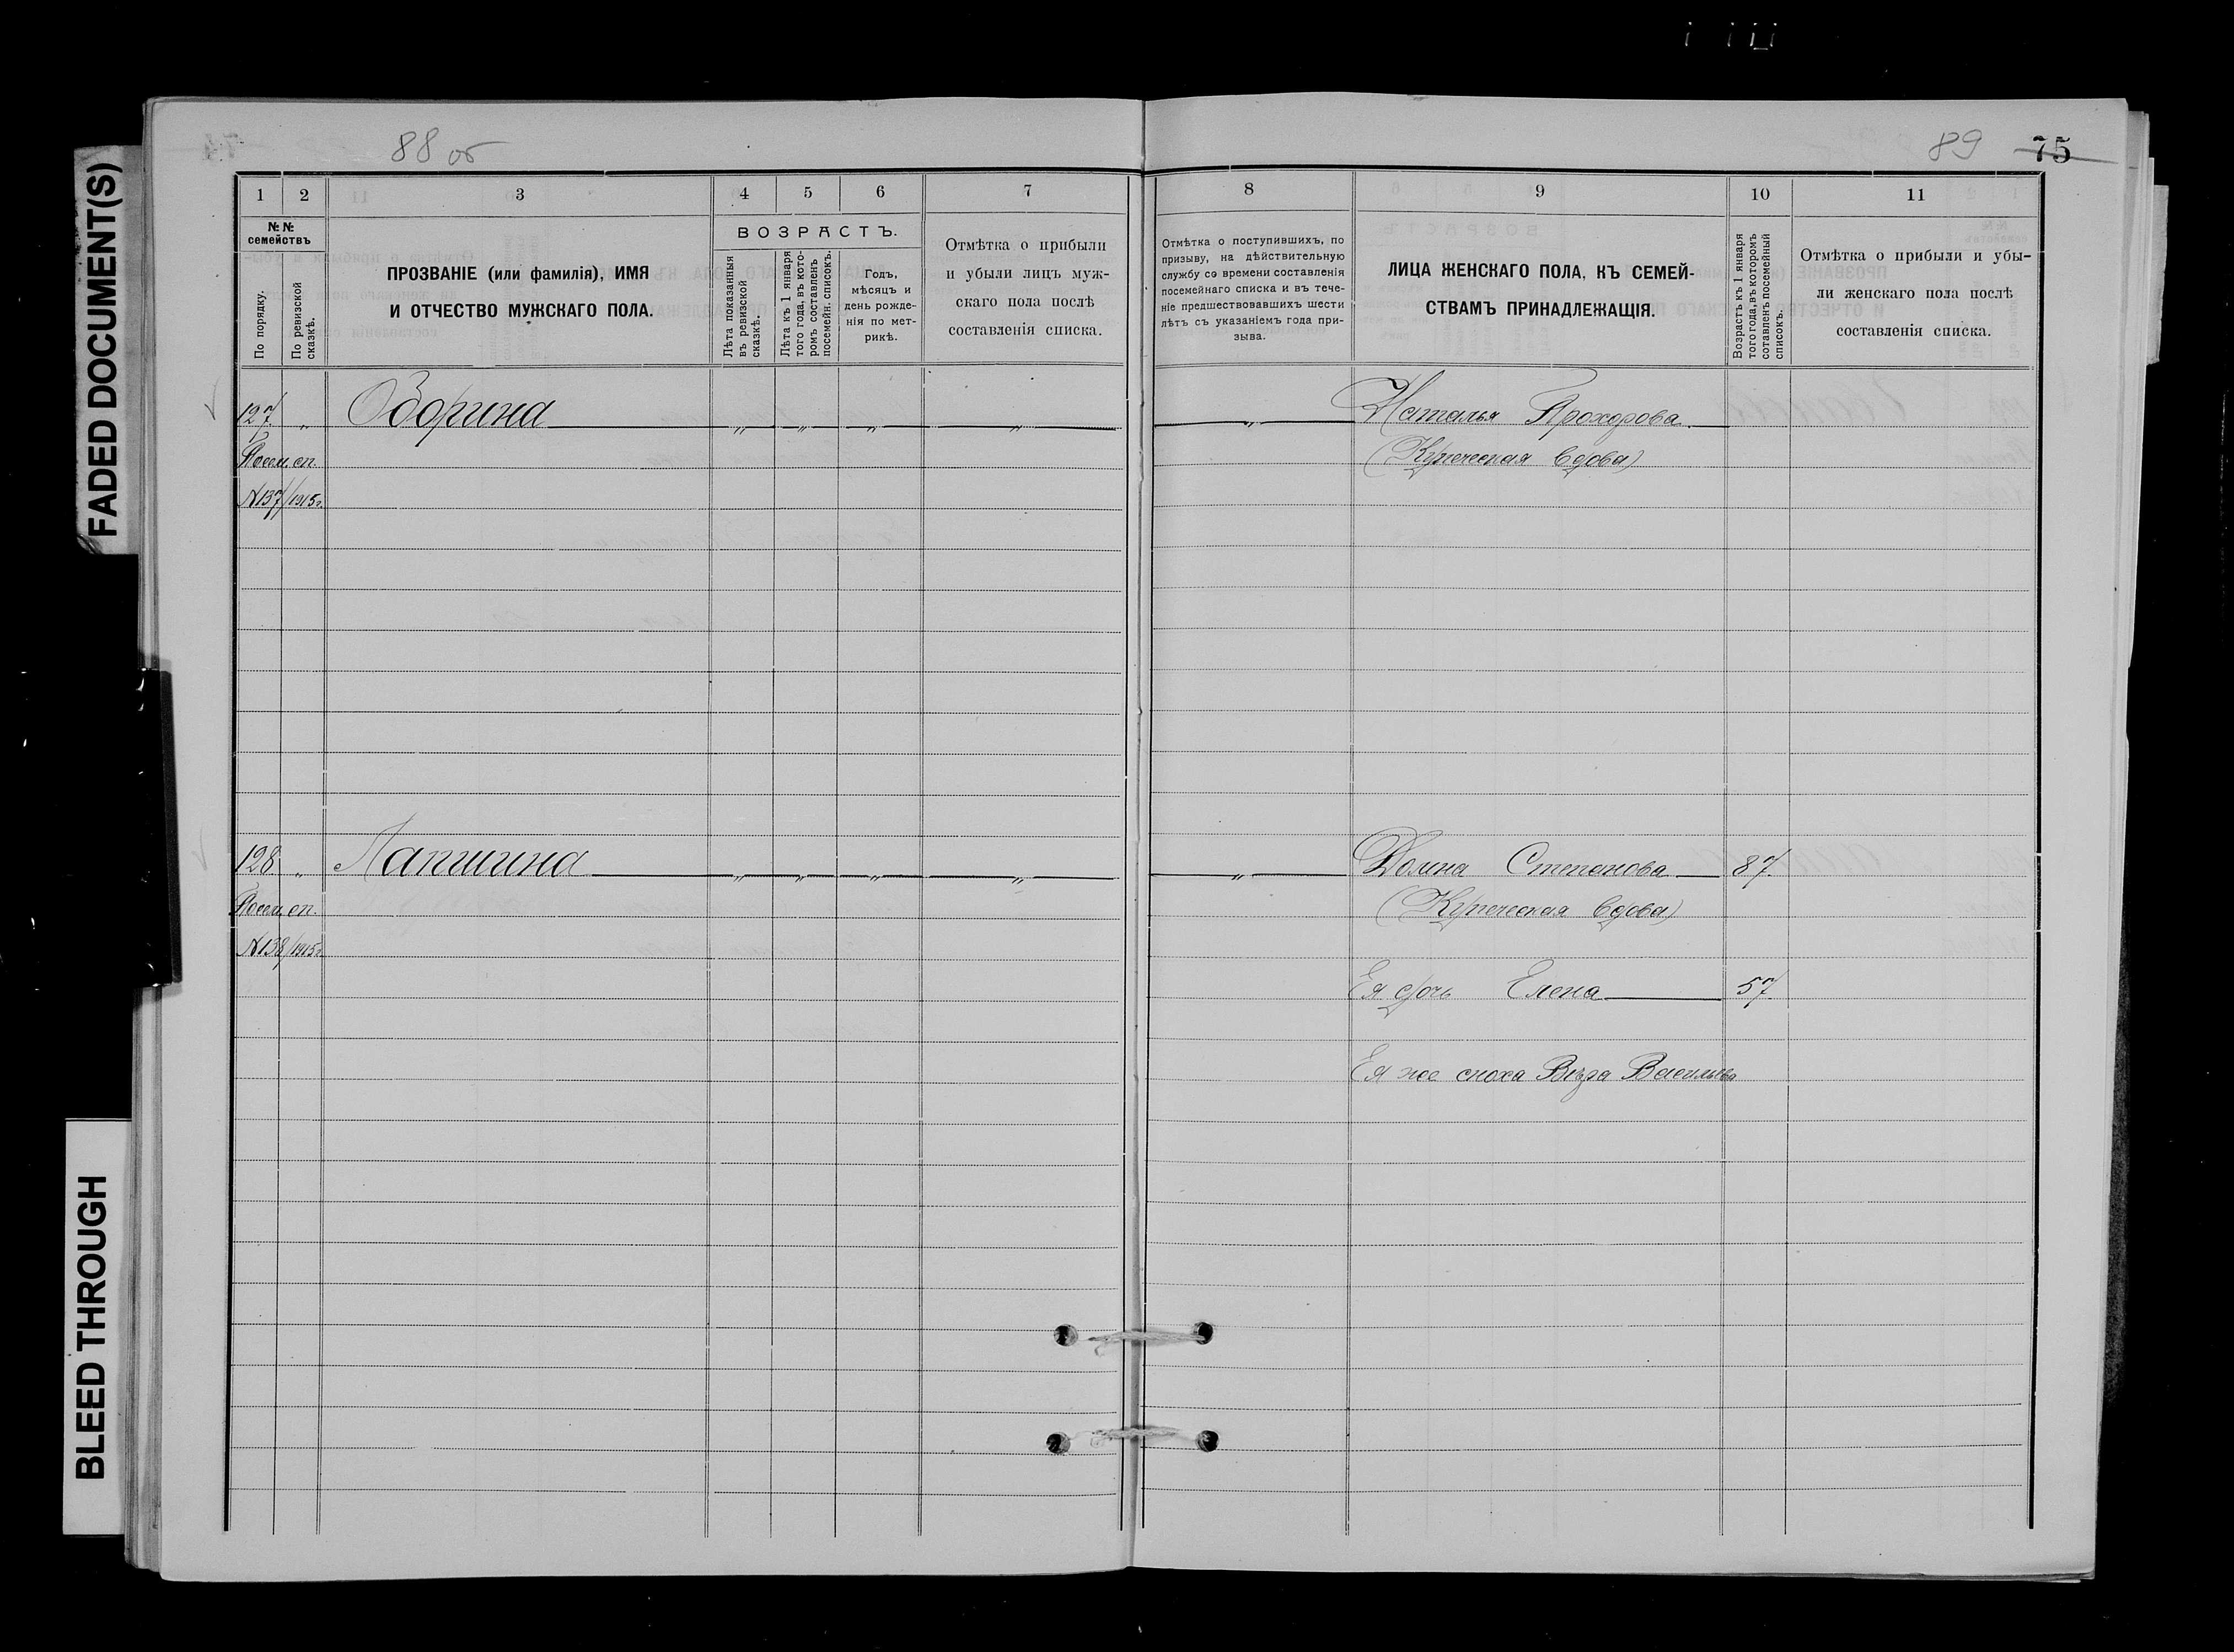 FADED DOCUMENT(S)
BLEED THROUGH
88 об
89 75
1 2 3 4 5 6 7
№ № семействъ
По порядку.
По ревизской сказкѣ.
ПРОЗВАНІЕ (или фамилія), ИМЯ
И ОТЧЕСТВО МУЖСКАГО ПОЛА.
ВОЗРАСТЪ.
Лѣта показанныя въ ревизской сказкѣ.
Лѣта къ 1 января того года, въ кото-
ромъ составленъ посемейн. списокъ.
Годъ,
мѣсяцъ и
день рожде-
нія по мет-
рикѣ.
Отмѣтка о прибыли
и убыли лицъ муж-
скаго пола послѣ
составленія списка.
8 9 10 11
Отмѣтка о поступившихъ, по
призыву, на дѣйствительную
службу со времени составленія
посемейнаго списка и въ тече-
ніе предшествовавшихъ шести
лѣтъ съ указаніемъ года при-
зыва.
ЛИЦА ЖЕНСКАГО ПОЛА, КЪ СЕМЕЙ-
СТВАМЪ ПРИНАДЛЕЖАЩІЯ.
Возрастъ къ 1 января
того года, въ которомъ
составленъ посемейный
списокъ.
Отмѣтка о прибыли и убы-
ли женскаго пола послѣ
составленія списка.
127. „ Зорина „ „ „ „ „ Наталья Прохорова
Посем. сп. (Купеческая вдова)
№137/1915г.
128 „ Лапшина „ „ „ „ „ Степанова 87.
Посем. сп. (Купеческая вдова)
№138/1915г.
Ея дочь Елена 57.
Ея же сноха Вѣра Васильева